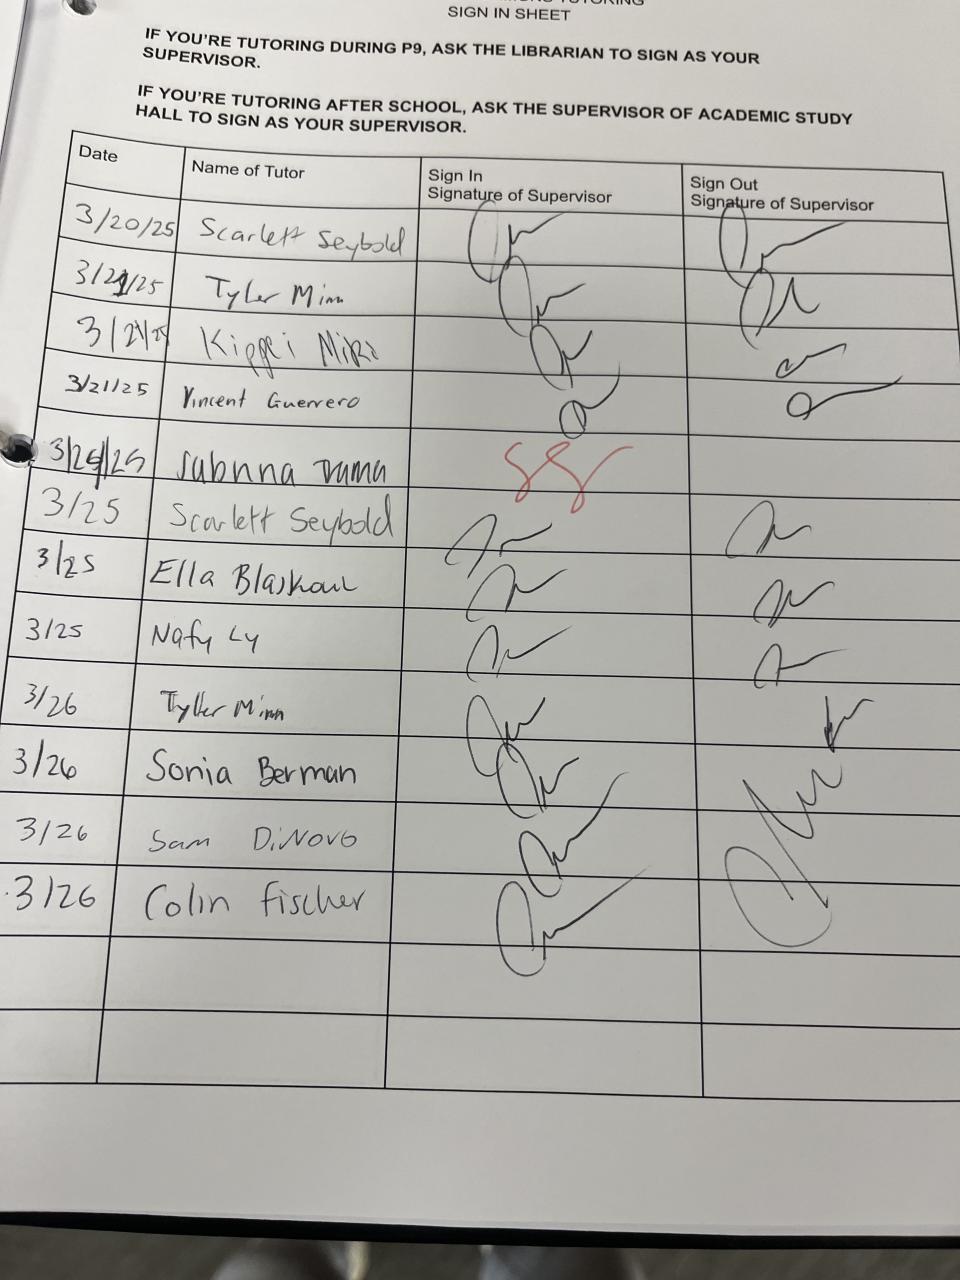 SIGN IN SHEET
IF YOU'RE TUTORING DURING P9, ASK THE LIBRARIAN TO SIGN AS YOUR
SUPERVISOR.
IF YOU'RE TUTORING AFTER SCHOOL, ASK THE SUPERVISOR OF ACADEMIC STUDY
HALL TO SIGN AS YOUR SUPERVISOR.
Date Name of Tutor Sign In Sign Out
Signature of Supervisor Signature of Supervisor
3/20/25 Scarlett Seybold
3/21/25 Tyler Minn
3/21/25 Kippei Miki
3/21/25 Vincent Guerrero
3/25
3/25 Scarlett Seybold
3/25 Ella
3/25 Nafy Ly
3/26 Tyller Minn
3/26 Sonia Berman
3/26 Sam DiNovo
3/26 Colin Fischer